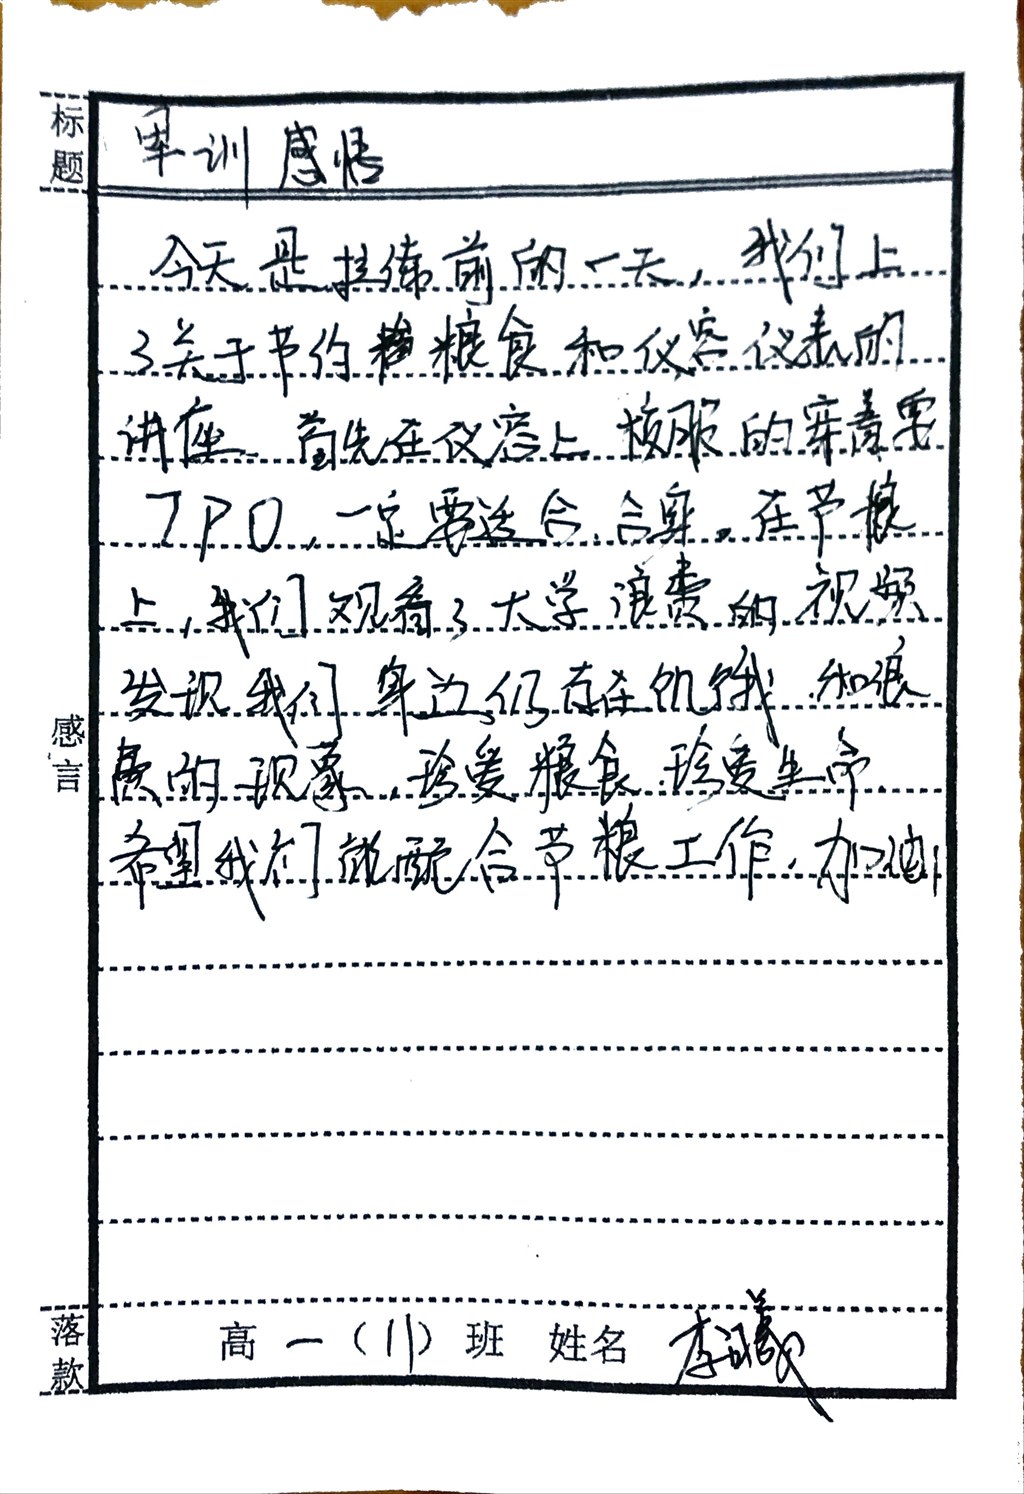 标题
军训感悟
今天是拉练前的一天，我们上
了关于节约粮食和仪容仪表的
讲座。首先在仪容上校服的穿着要
TPO，一定要适合、合身。在节粮
上，我们观看了大学浪费的视频
发现我们身边仍存在饥饿和浪
费的现象，珍爱粮食珍爱生命，
希望我们能配合节粮工作，加油！
感言
落款
高一（11）班 姓名 李曦